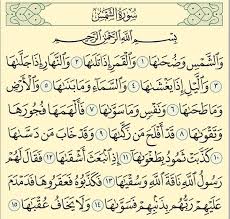 سُورَةُ الشَّمْسِ
بِسْمِ اللَّهِ الرَّحْمَٰنِ الرَّحِيمِ
وَالشَّمْسِ وَضُحَىٰهَا ١ وَالْقَمَرِ إِذَا تَلَىٰهَا ٢ وَالنَّهَارِ إِذَا جَلَّىٰهَا
٣ وَالَّيْلِ إِذَا يَغْشَىٰهَا ٤ وَالسَّمَآءِ وَمَا بَنَىٰهَا ٥ وَالْأَرْضِ
وَمَا طَحَىٰهَا ٦ وَنَفْسٍ وَمَا سَوَّىٰهَا ٧ فَأَلْهَمَهَا فُجُورَهَا
وَتَقْوَىٰهَا ٨ قَدْ أَفْلَحَ مَن زَكَّىٰهَا ٩ وَقَدْ خَابَ مَن دَسَّىٰهَا
١٠ كَذَّبَتْ ثَمُودُ بِطَغْوَىٰهَآ ١١ إِذِ انۢبَعَثَ أَشْقَىٰهَا ١٢ فَقَالَ لَهُمْ
رَسُولُ اللَّهِ نَاقَةَ اللَّهِ وَسُقْيَٰهَا ١٣ فَكَذَّبُوهُ فَعَقَرُوهَا فَدَمْدَمَ
عَلَيْهِمْ رَبُّهُم بِذَنۢبِهِمْ فَسَوَّىٰهَا ١٤ وَلَا يَخَافُ عُقْبَٰهَا ١٥